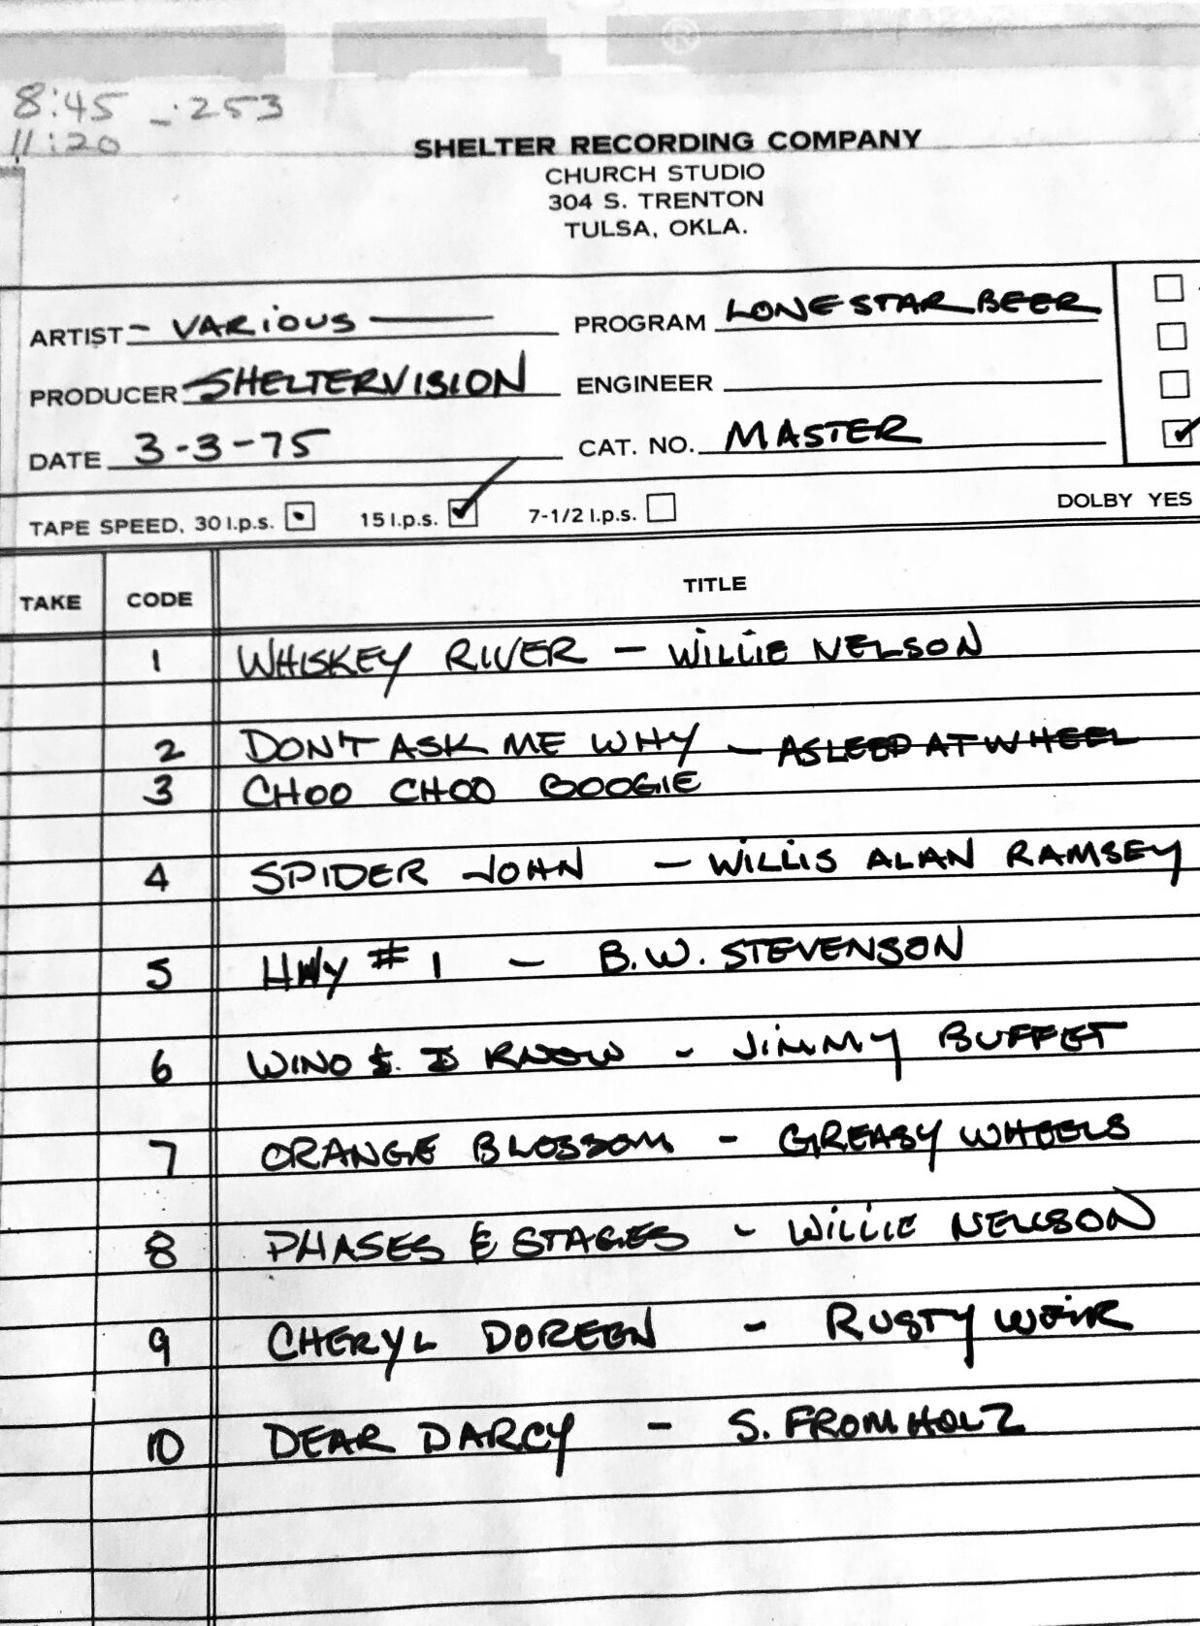 ®
8:45 - :253
11:20
SHELTER RECORDING COMPANY
CHURCH STUDIO
304 S. TRENTON
TULSA, OKLA.
ARTIST - VARIOUS — PROGRAM LONE STAR BEER
PRODUCER SHELTERVISION ENGINEER
DATE 3-3-75 CAT. NO. MASTER
TAPE SPEED, 30 I.p.s. 15 I.p.s. 7-1/2 I.p.s. DOLBY YES
TAKE CODE TITLE
1 WHISKEY RIVER - WILLIE NELSON
2 DON'T ASK ME WHY - ASLEEP AT WHEEL
3 CHOO CHOO BOOGIE
4 SPIDER JOHN - WILLIS ALAN RAMSEY
5 HWY # 1 - B.W. STEVENSON
6 WINO & I KNOW - JIMMY BUFFET
7 ORANGE BLOSSOM - GREASY WHEELS
8 PHASES & STAGES - WILLIE NELSON
9 CHERYL DOREEN - RUSTY WEIR
10 DEAR DARCY - S. FROMHOLZ